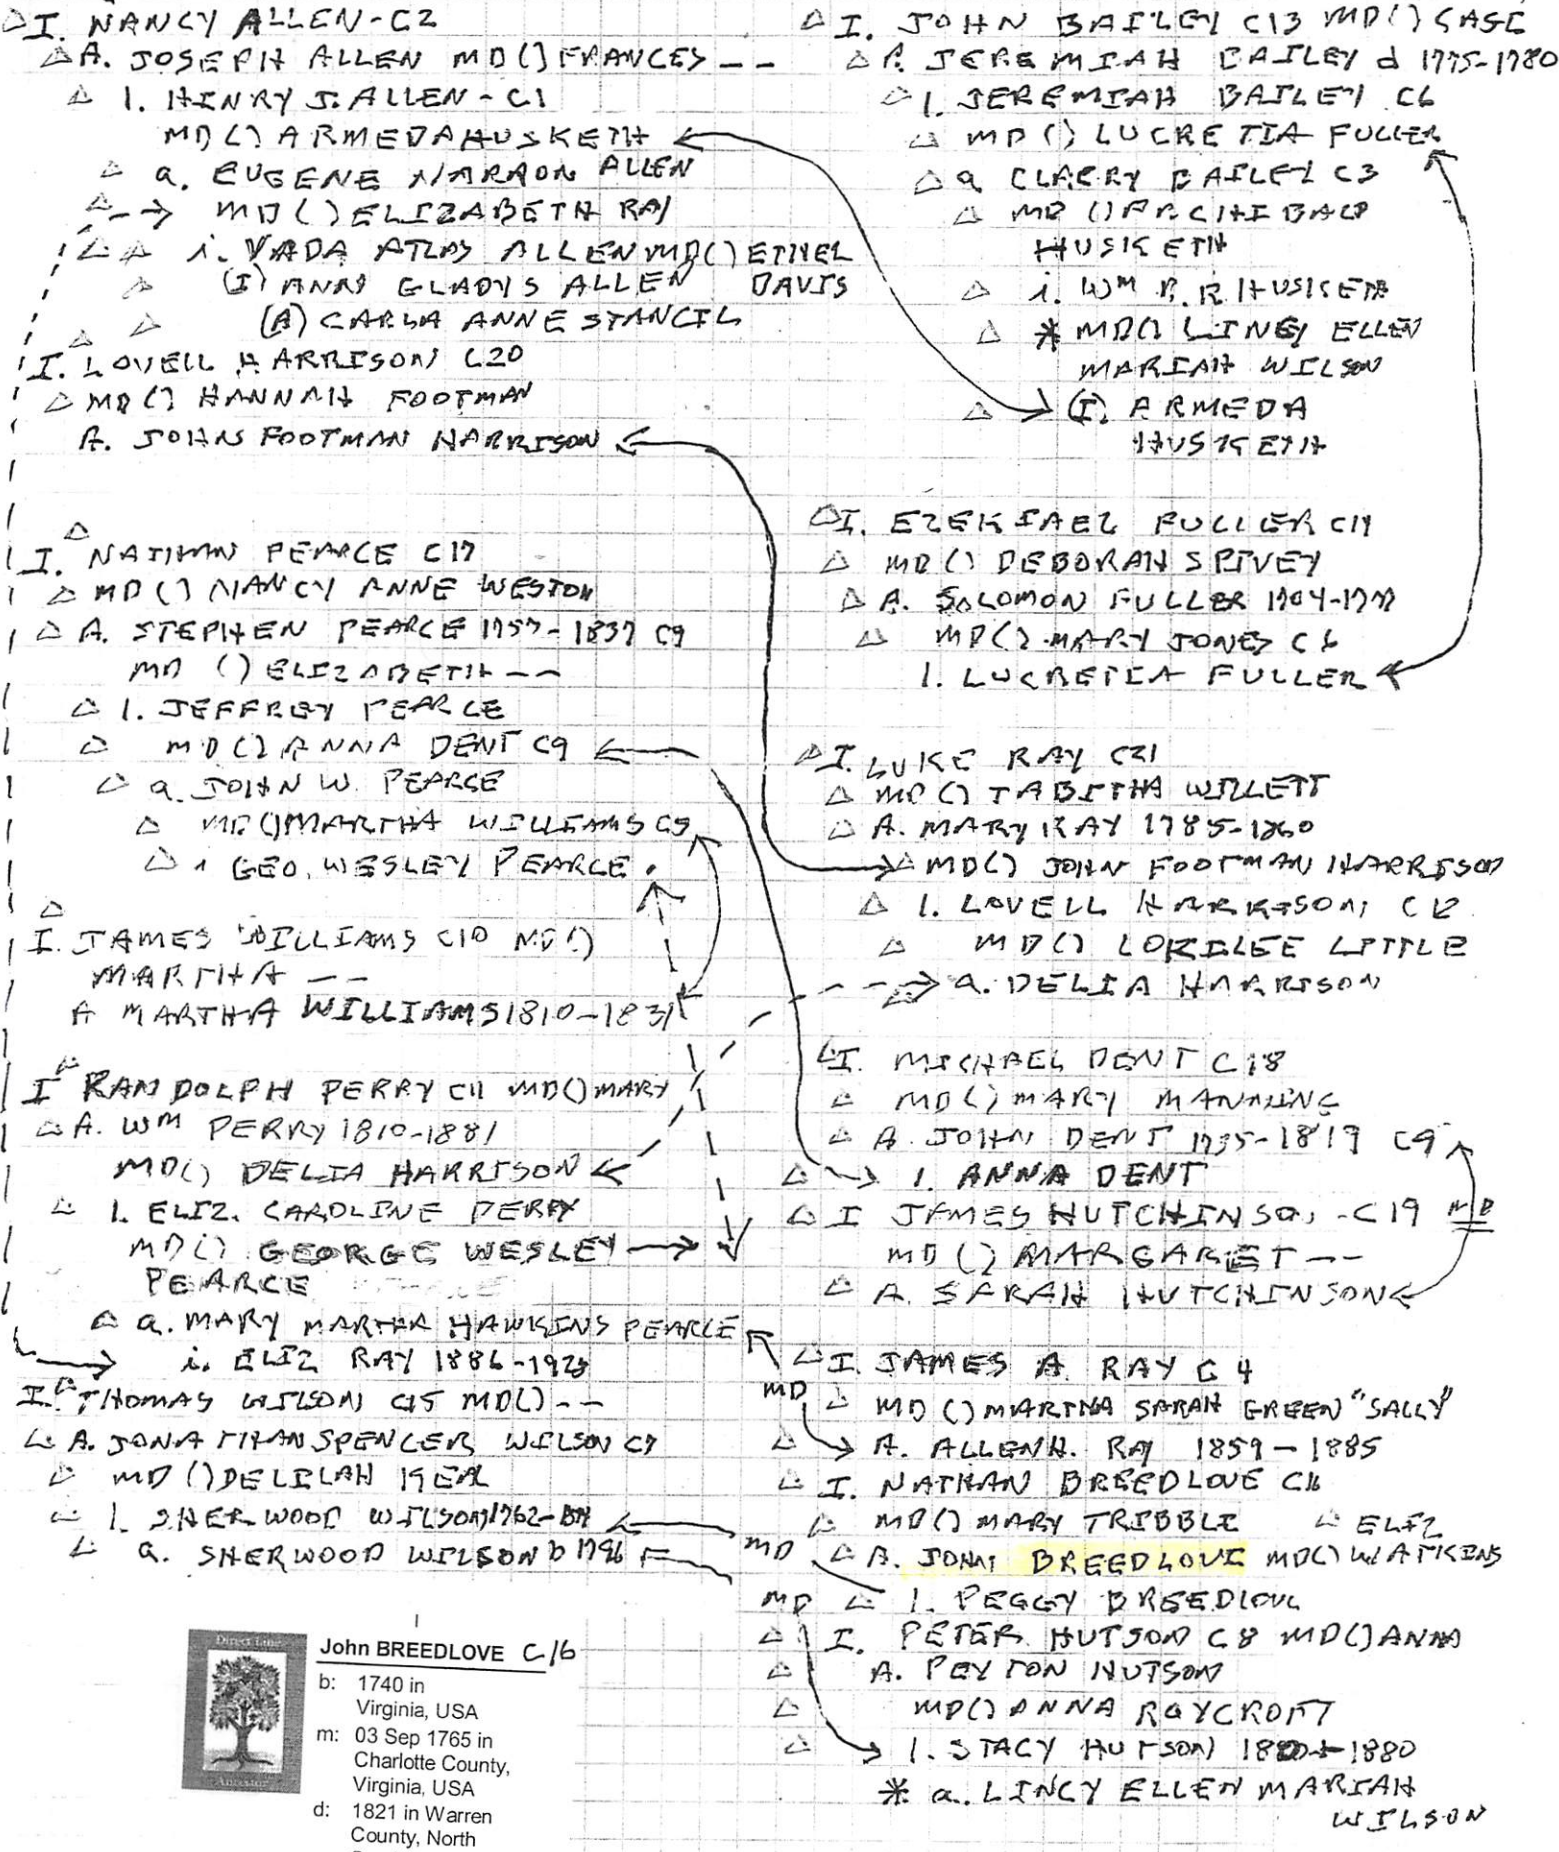 I. NANCY ALLEN-C2
A. JOSEPH ALLEN MD() FRANCES --
1. HINRY J. ALLEN - C1
MD() ARMEDA HUSKETH
a. EUGENE ALLEN
MD() ELIZABETH RAY
i. VADA ATLAS ALLEN MD() ETHEL
(I) ANN GLADYS ALLEN DAVIS
(A) CARLA ANNE STANCIL
I. LOVELL HARRISON C20
MD() HANNAH FOOTMAN
A. JOHN FOOTMAN HARRISON
I. NATHAN PEARCE C17
MD() NANCY ANNE WESTON
A. STEPHEN PEARCE 1757-1837 C9
MD () ELIZABETH --
1. JEFFREY PEARCE
MD() ANNA DENT C9
a. JOHN W. PEARCE
MD() MARTHA WILLIAMS C5
i GEO. WESLEY PEARCE
I. JAMES WILLIAMS C10 MD()
MARTHA --
A MARTHA WILLIAMS 1810-1831
I RANDOLPH PERRY C11 MD() MARY
A. WM PERRY 1810-1881
MD() DELIA HARRISON
1. ELIZ. CAROLINE PERRY
MD() GEORGE WESLEY
PEARCE
a. MARY MARTHA HAWKINS PEARCE
i. ELIZ RAY 1886-
I. THOMAS WILSON C15 MD() --
A. JONATHAN SPENCER WILSON C7
MD () DELILAH
1. SHERWOOD WILSON 1762-
a. SHERWOOD WILSON b 1796
John BREEDLOVE C16
Direct Line
Ancestor
b: 1740 in
Virginia, USA
m: 03 Sep 1765 in
Charlotte County,
Virginia, USA
d: 1821 in Warren
County, North
I. JOHN BAILEY C13 MD() CASE
A. JEREMIAH BAILEY d 1775-1780
1. JEREMIAH BAILEY C6
MD () LUCRETIA FULLER
a CLARRY BAILEY C3
MD () ARCHIBALD
HUSKETH
i. WM R. R. HUSKETH
* MD() LINCY ELLEN
MARIAH WILSON
(I). ARMEDA
HUSKETH
I. EZEKIAEL FULLER C14
MD () DEBORAH SPIVEY
A. SOLOMON FULLER 1704-
MD() MARY JONES C6
1. LUCRETIA FULLER
I. LUKE RAY C21
MD () TABITHA WILLETT
A. MARY RAY 1785-1860
MD() JOHN FOOTMAN HARRISON
1. LOVELL HARRISON, C12
MD() LORILEE LITTLE
a. DELIA HARRISON
I. MICHAEL DENT C18
MD() MARY MANNING
A. JOHN DENT 1735-1819 C9
1. ANNA DENT
I JAMES HUTCHINSON - C19 MD
MD () MARGARET --
A. SARAH HUTCHINSON
I. JAMES A. RAY C4
MD
MD () MARTHA SARAH GREEN "SALLY"
A. ALLEN H. RAY 1859-1885
I. NATHAN BREEDLOVE C16
MD() MARY TRIBBLE ELIZ
MD
A. JOHN BREEDLOVE MD() WATKINS
MD
1. PEGGY BREEDLOVE
I. PETER HUTSON C8 MD() ANNA
A. PEYTON HUTSON
MD() ANNA ROYCROFT
1. STACY HUTSON 1880
* a. LINCY ELLEN MARIAH
WILSON